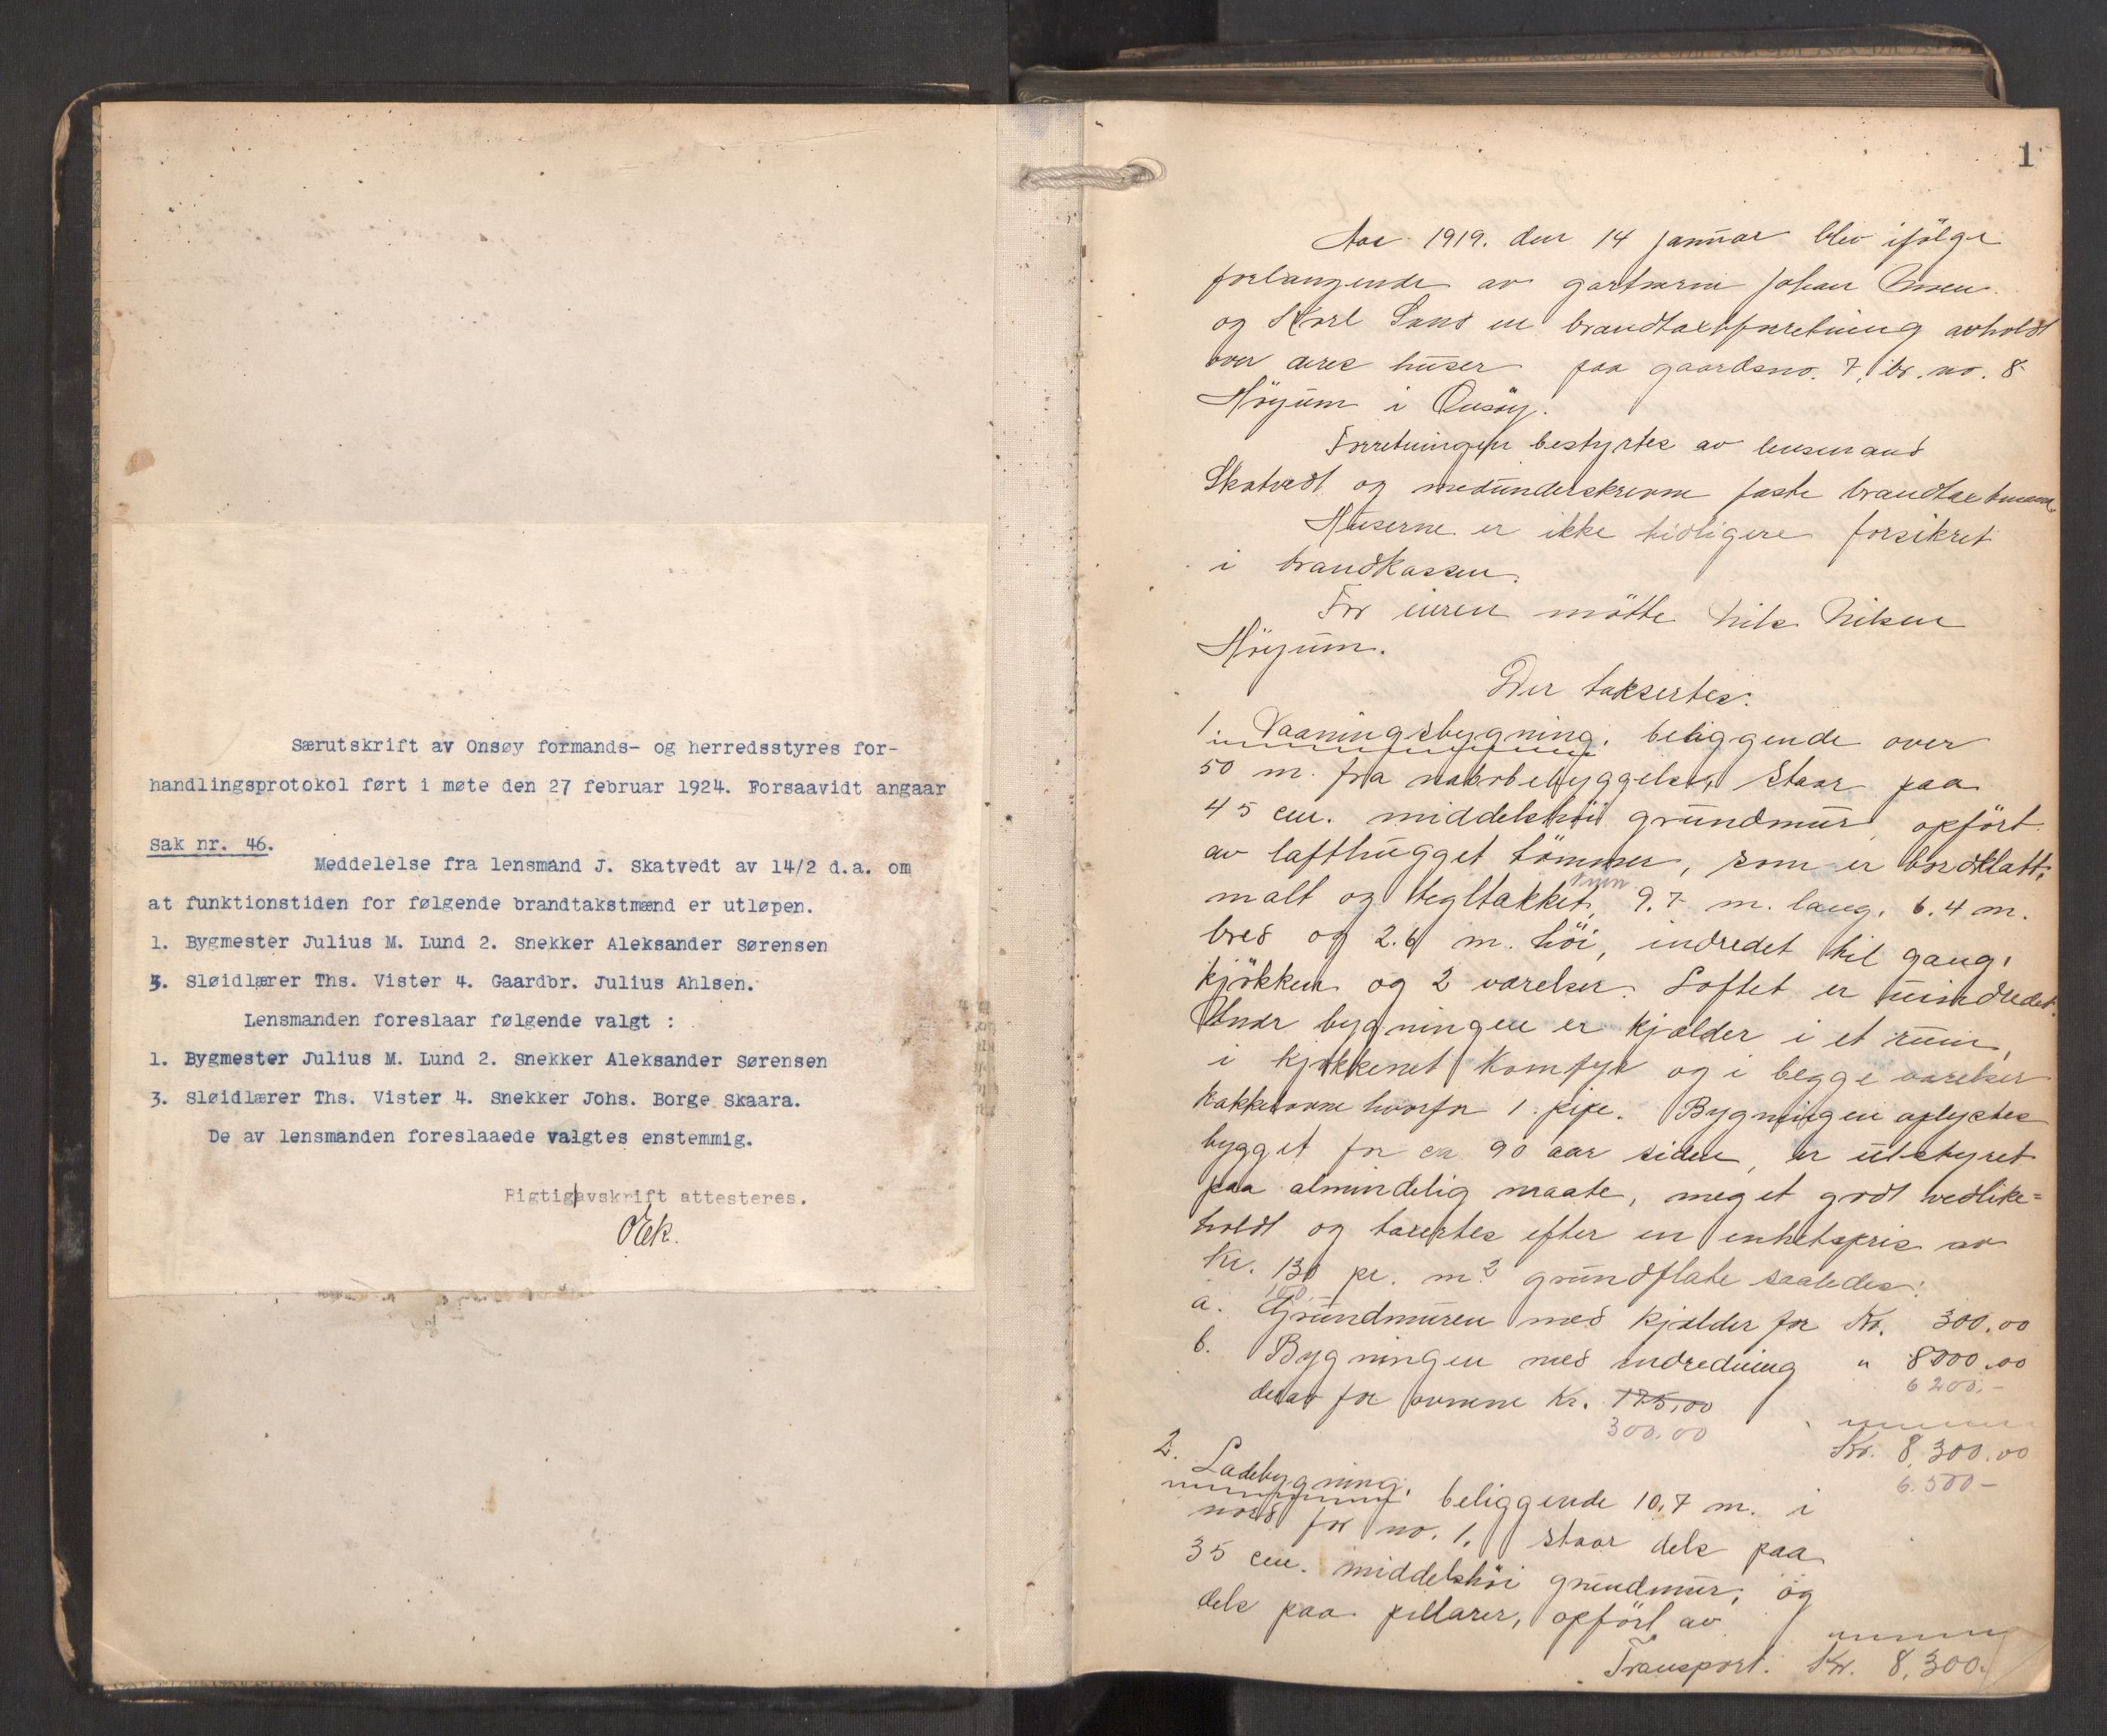 Særutskrift av Onsøy formands- og herredsstyres for-
handlingsprotokol ført i møte den 27 februar 1924. Forsaavidt angaar
Sak nr. 46.
Meddelelse fra lensmand J. Skatvedt av 14/2 d.a. om
at funktionstiden for følgende brandtakstmænd er utløpen.
1. Bygmester Julius M. Lund 2. Snekker Aleksander Sørensen
3. Sløidlærer Ths. Vister 4. Gaardbr. Julius Ahlsen.
Lensmanden foreslaar følgende valgt :
1. Bygmester Julius M. Lund 2. Snekker Aleksander Sørensen
3. Sløidlærer Ths. Vister 4. Snekker Johs. Borge Skaara.
De av lensmanden foreslaaede valgtes enstemmig.
Rigtig avskrift attesteres.
1
Aar 1919. den 14 januar blev ifölge
forlangende av gartnerne Johan
og Karl en brandtaxtforretning avholdt
over deres huser paa gaardsno. 7, br. no. 8
Höyum i Onsöy.
Forretningen bestyrtes av lensmand
Skatvedt og medunderskrevne faste brandtaxtmænd.
Huserne er ikke tidligere forsikret
i brandkassen.
For eieren mötte Nils Nilsen
Höyum.
Der taksertes:
1. Vaaningsbygning, beliggende over
50 m. fra nabobebyggelse, staar paa
45 cm. middelshöi grundmur, opfört
av lafthugget tömmer, som er bordklætt,
malt og tegltækket, 9.7 m. lang, 6.4 m.
bred og 2.6 m. höi, indredet til gang,
kjökken og 2 værelser. Loftet er uindredet.
Under bygningen er kjælder i et rum,
i kjökkenet komfyr og i begge værelser
kakkelovne hvorfor 1 pipe. Bygningen oplystes
bygget for ca 90 aar siden, er utstyret
paa almindelig maate, meget godt vedlike=
holdt og taxertes efter en enhetspris av
Kr. 130 pr. m² grundflate saaledes:
100
a. Grundmuren med kjælder for Kr. 300.00
b. Bygningen med indredning " 8000.00
6200.-
derav for ovnene Kr. 175,00
300.00
Kr. 8,300.00
6.500-
2. Ladebygning, beliggende 10,7 m. i
nord for no. 1, staar dels paa
35 cm. middelshöi grundmur, og
dels paa pillarer, opfört av
Transport. Kr. 8,300.